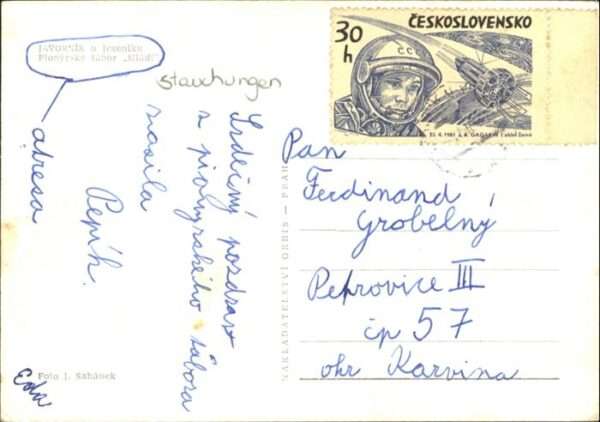 JAVORNÍK u Jeseníka
Pionýrský tábor „Mládí"
stauchungen
adresa
Srdečný pozdrav
z pionýrského tábora
zasílá
Pepík.
Eda
Foto J. Sahánek
NAKLADATELSTVÍ ORBIS — PRAHA
ČESKOSLOVENSKO
30
h
12. 4. 1961 J. A. GAGARIN
Pan
Ferdinand
Grobelný
Petrovice III
čp 57
okr Karvina